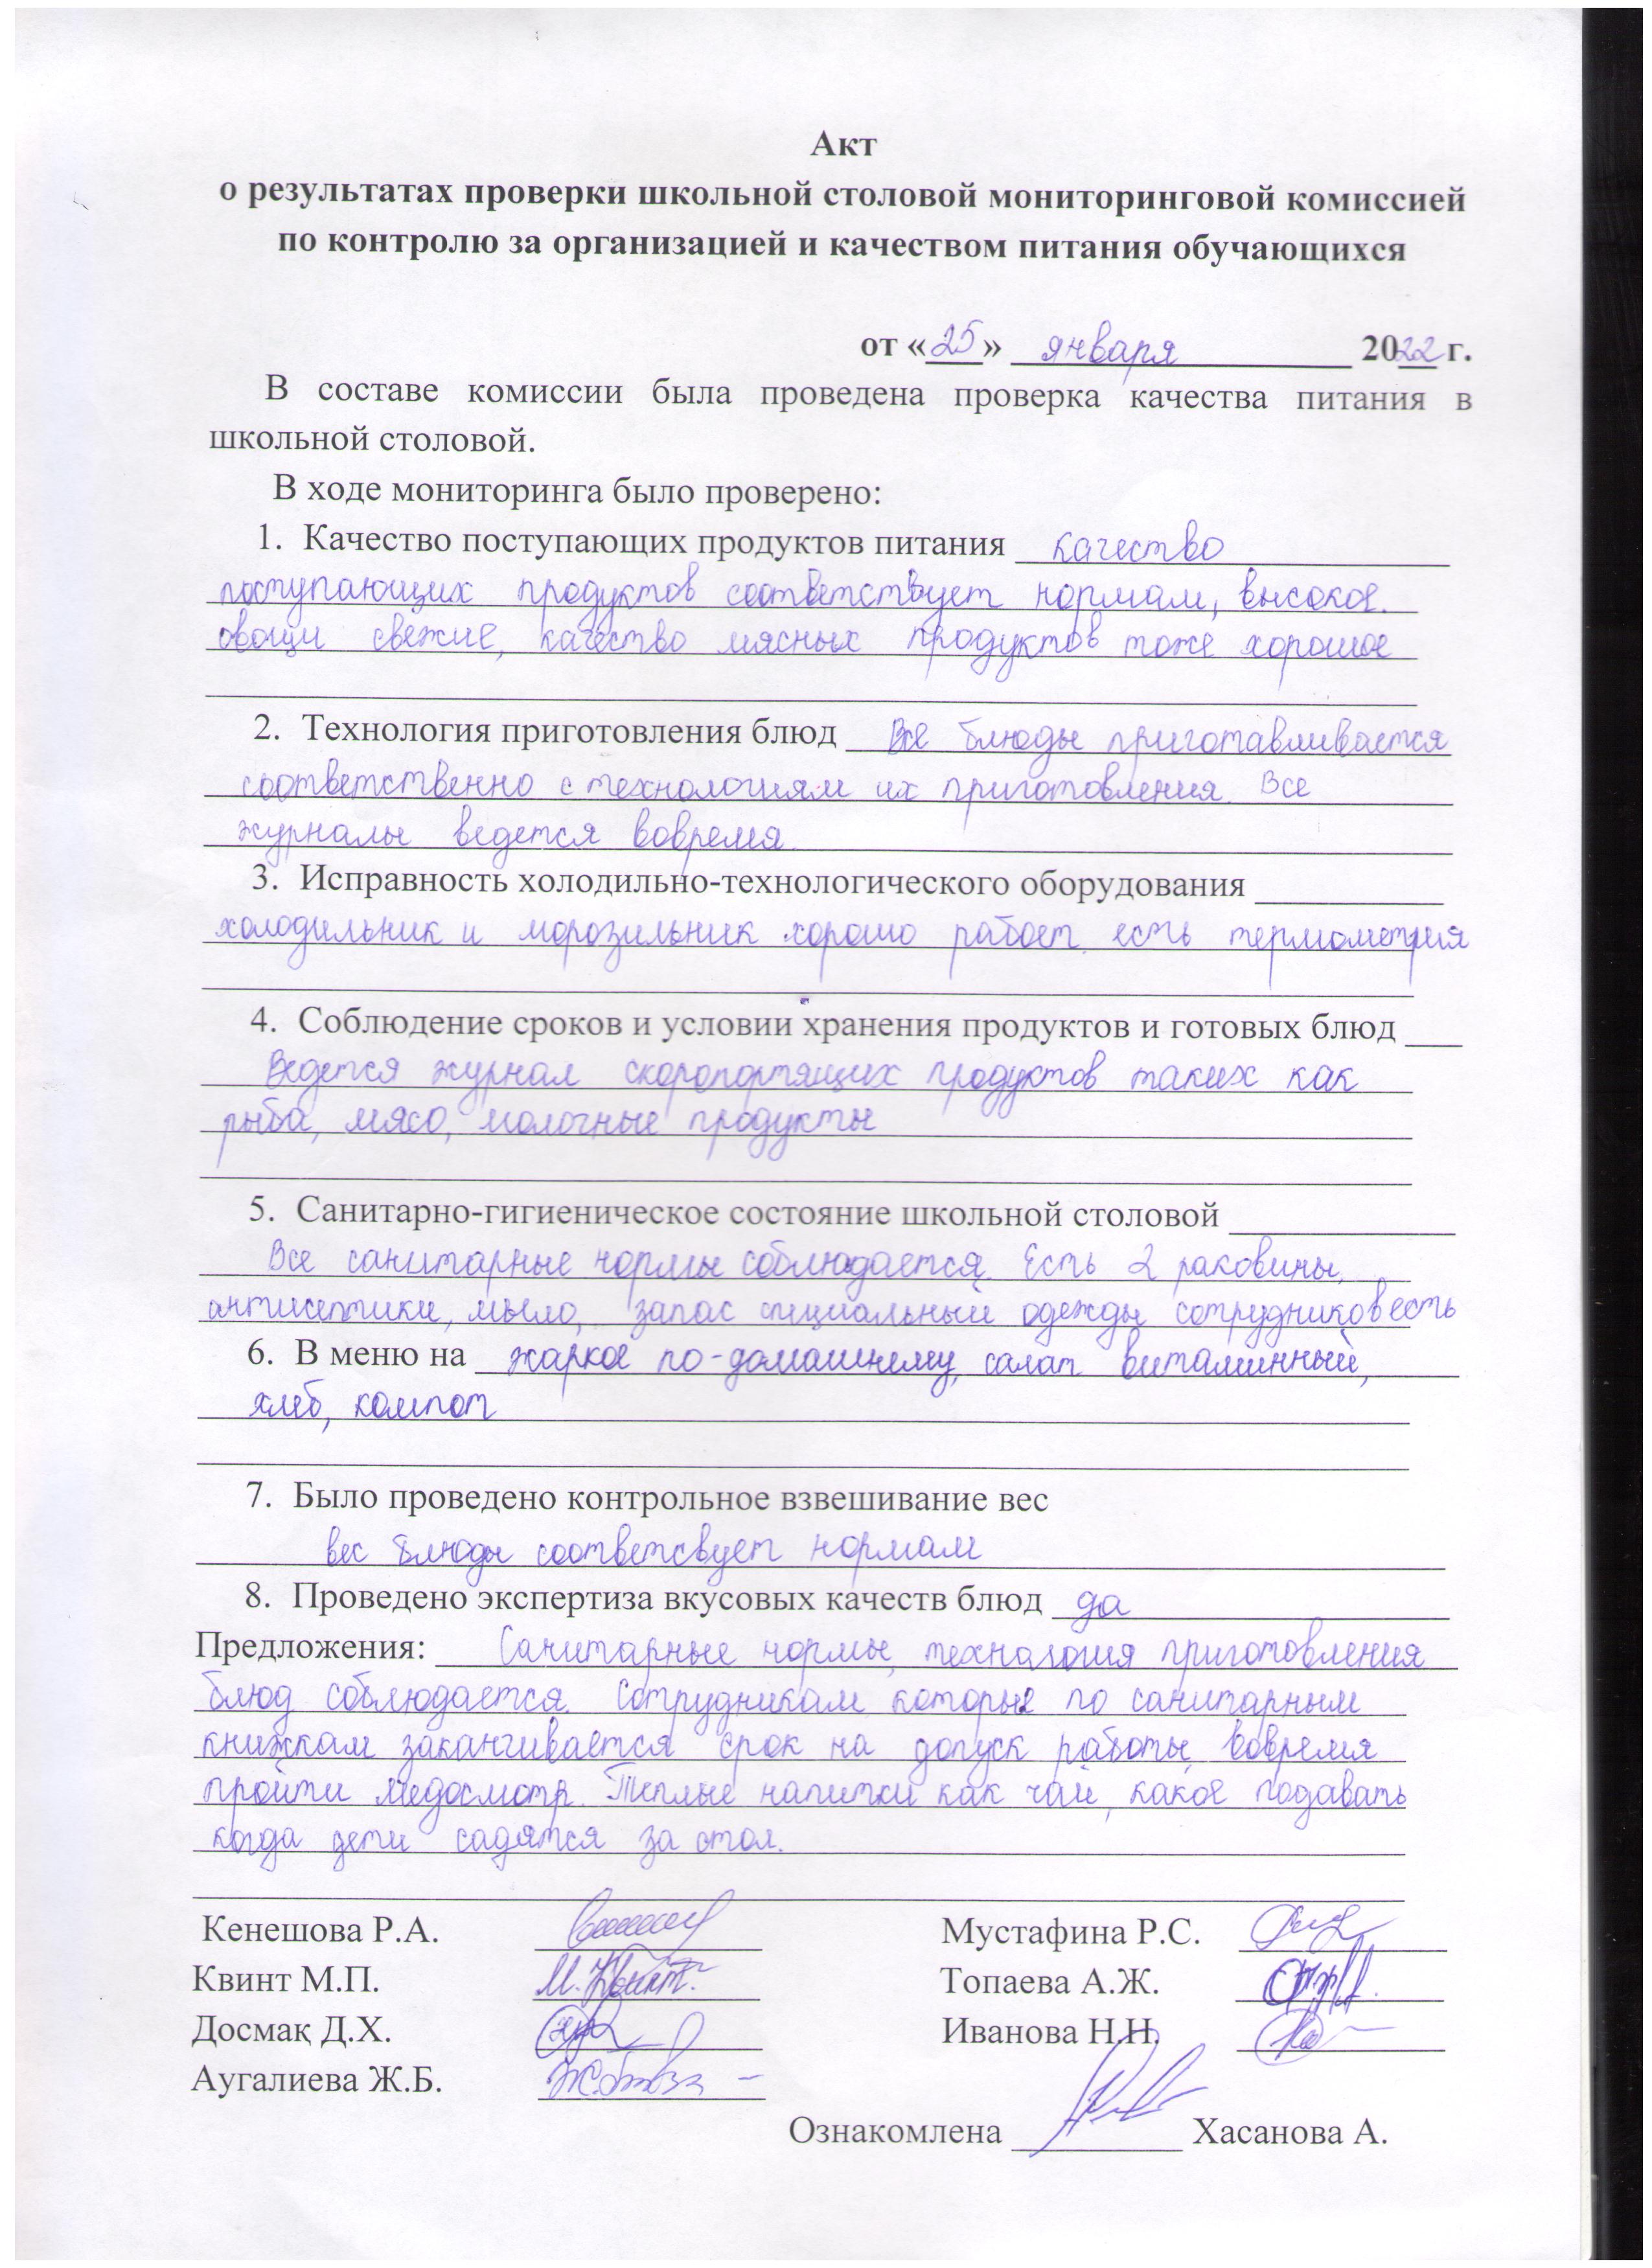 Акт
о результатах проверки школьной столовой мониторинговой комиссией
по контролю за организацией и качеством питания обучающихся
от «25» января 2022 г.
В составе комиссии была проведена проверка качества питания в
школьной столовой.
В ходе мониторинга было проверено:
1. Качество поступающих продуктов питания качество
поступающих продуктов соответствует нормам, высокое.
овощи свежие, качество мясных продуктов тоже хорошое
2. Технология приготовления блюд Все блюды приготавливается
соответственно с технологиям их приготовления. Все
журналы ведется вовремя.
3. Исправность холодильно-технологического оборудования
холодильник и морозильник хорошо работ. есть термометрия
4. Соблюдение сроков и условии хранения продуктов и готовых блюд
Ведется журнал скоропортящих продуктов таких как
рыба, мясо, молочные продукты
5. Санитарно-гигиеническое состояние школьной столовой
Все санитарные нормы соблюдается. Есть 2 раковины,
антисептики, мыло, запас специальный одежды сотрудников есть
6. В меню на жаркое по-домашнему, салат витаминный,
хлеб, компот
7. Было проведено контрольное взвешивание вес
вес блюды соответсвует нормам
8. Проведено экспертиза вкусовых качеств блюд да
Предложения: Санитарные нормы, технология приготовления
блюд соблюдается. Сотрудникам которые по санитарным
книжкам заканчивается срок на допуск работы вовремя
пройти медосмотр. Теплые напитки как чай, какое подавать
когда дети садятся за стол.
Кенешова Р.А. Мустафина Р.С.
Квинт М.П. М. Квинт Топаева А.Ж.
Досмақ Д.Х. Иванова Н.Н.
Аугалиева Ж.Б.
Ознакомлена Хасанова А.